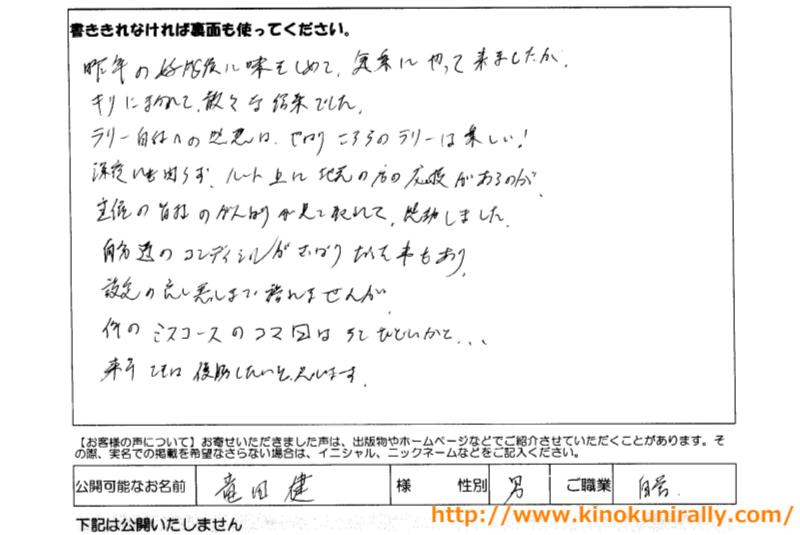 書ききれなければ裏面も使ってください。
昨年の好成績に味をしめて、気楽にやって来ましたが、
キリにまかれて、散々な結果でした。
ラリー自体への感想は、やはりこちらのラリーは楽しい!
深夜にも関らず、ルート上に地元の方の応援があるのが、
主催の皆様のがんばりが見て取れて、感動しました。
自分達のコンディションがさっぱりだった事もあり、
設定の良し悪しまで語れませんが、
例のミスコースのコマ図は ひどいかと...
来年こそは優勝したいと思います。
【お客様の声について】お寄せいただきました声は、出版物やホームページなどでご紹介させていただくことがあります。そ
の際、実名での掲載を希望なさらない場合は、イニシャル、ニックネームなどをご記入ください。
公開可能なお名前 竜田 健 様 性別 男 ご職業 自営
下記は公開いたしません
http://www.kinokunirally.com/